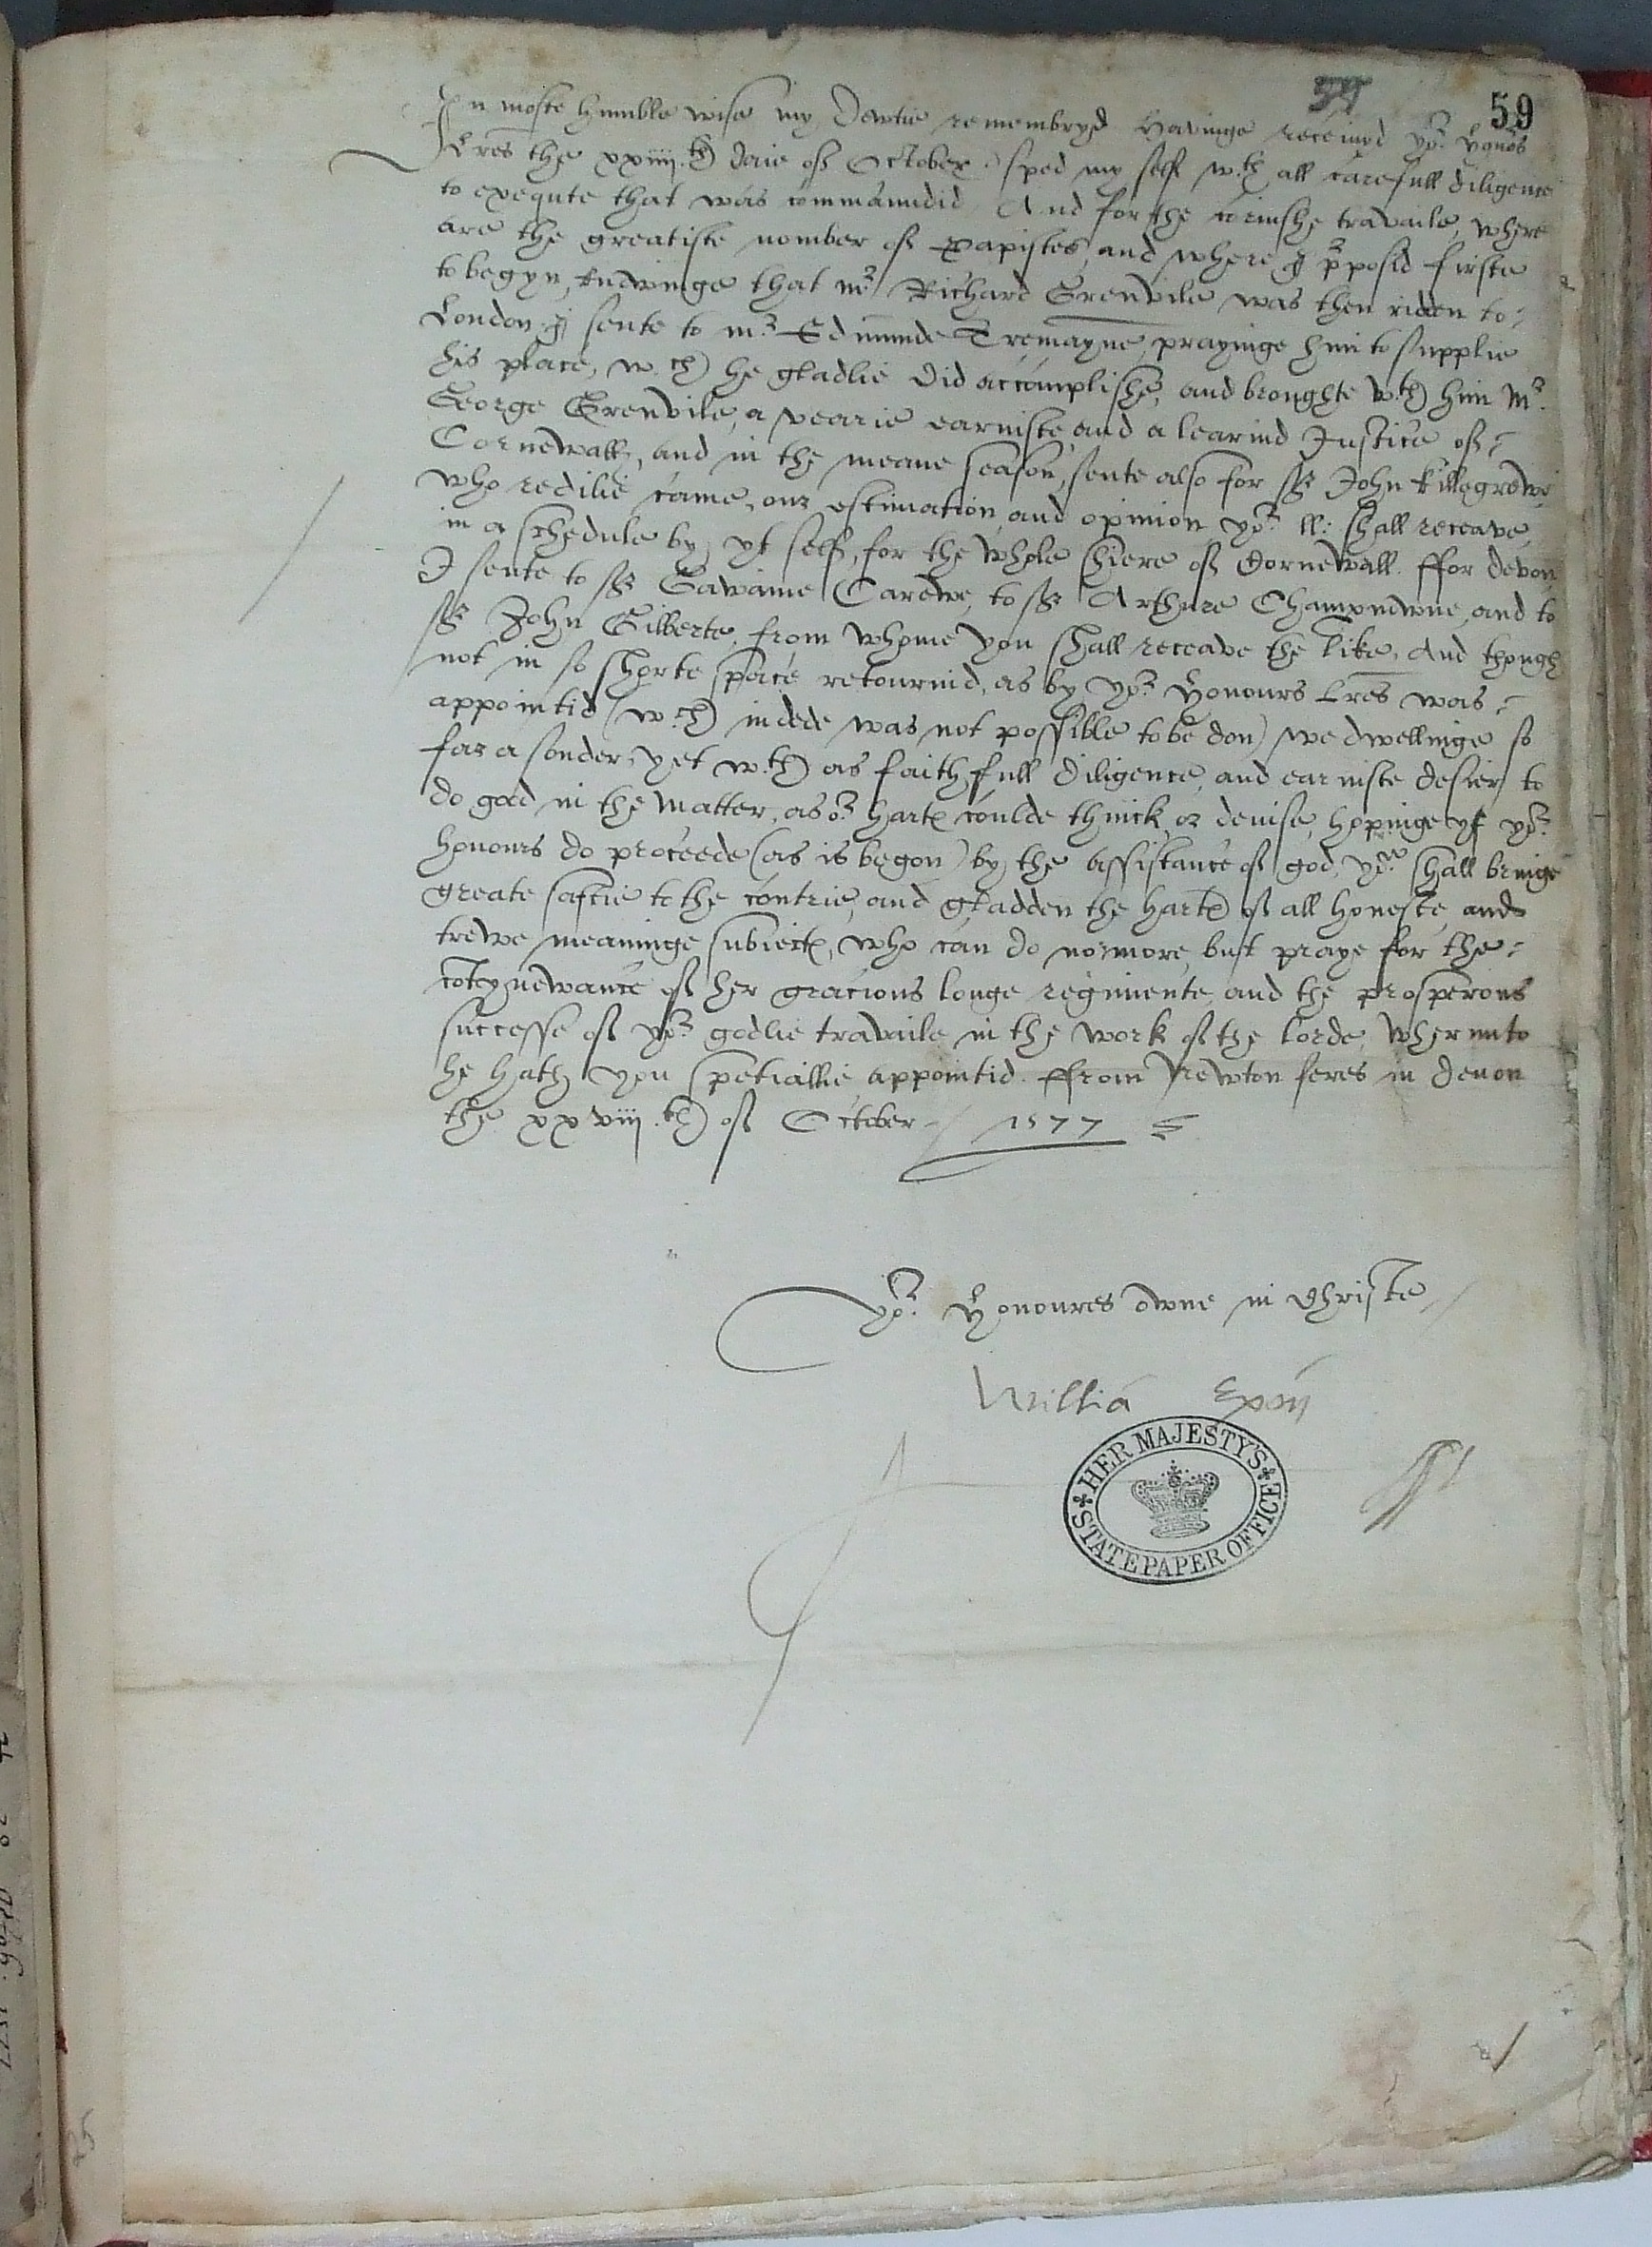 59
In moste humble wise my dewtie remembryd Havinge receivyd yor Honors
Lres the xxiiijth daie of October. sped my self wth all carefull diligence
to exequte that was commaundid And for the cornishe travaile, where
are the greatiste nomber of papistes, and where I pposid firste
to begyn, knowinge that mr Richard Grenvile was then ridden to=
London I sente to mr Edmunde Tremayne prayinge him to supplie
his place, wch he gladlie did accomplishe, and broughte wth him Mr
George Grenvile, a vearie earniste, and a learnid Justice of=
Cornewall, and in the meane season, sente also for Sr John Killegrewe
who redilie came, our estimation and opinion yor ll: shall receave
in a schedule by yt self, for the whole shiere of Cornewall. ffor devon
I sente to Sr Gawaine Carewe, to Sr Arthure Champnowne, and to
Sr John Gilberte, from whome you shall receave the like, And though
not in so shorte space retournid, as by yor Honours Lres was=
appointid (wch indede was not possible to be don) we dwellinge so
far a sonder, yet wth as faithfull diligence, and earniste desier to
do god in the matter, as or hartes coulde thinck or devise, hopinge yf yor
honours do proceede (as is begon) by the assistance of god, you shall bringe
greate saftie to the contrie, and gladden the hartes of all honeste and
trewe meaninge subiectes, who can do no more but praye for the=
cotynewance of her gracious longe regimente, and the prosperous
successe of yor godlie travaile in the work of the lorde, wherunto
he hath you spetiallie appointid. ffrom Newton feres in devon
the xxviijth of October 1577
yor Honoures owne in Christe
Williā Exōn
HER MAJESTY'S STATE PAPER OFFICE